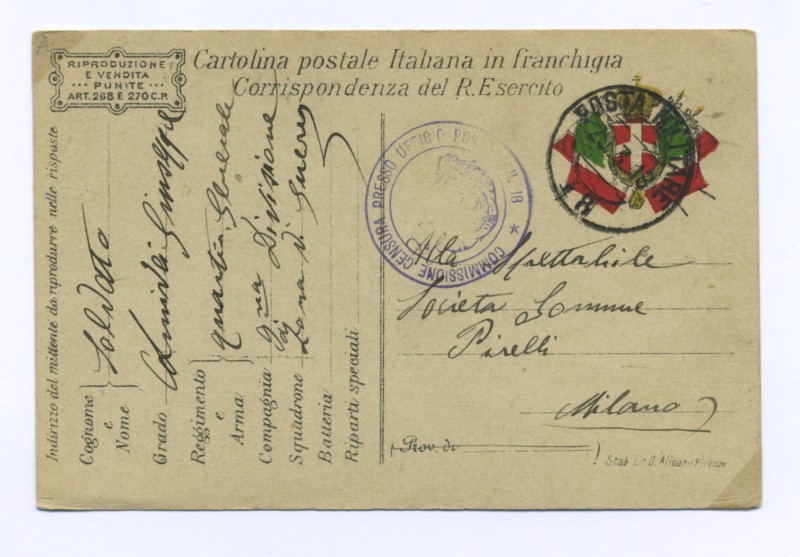 RIPRODUZIONE
E VENDITA
PUNITE
ART. 268 E 270 C.P.
Cartolina postale Italiana in franchigia
Corrispondenza del R. Esercito
Indirizzo del mittente da riprodurre nelle risposte
Cognome e Nome
Soldato
Grado
Giuseppe
Reggimento e Arma
Quartier Generale
Compagnia
9na Divisione
Squadrone
Zona di Guerra
Batteria
Riparti speciali
COMMISSIONE CENSURA PRESSO UFFICIO POSTA M. 18
POSTA MILITARE
Alla Spettabile
Societa Gomme
Pirelli
Milano
(Prov. di )
Stab. Lit. G. Alinari-Firenze